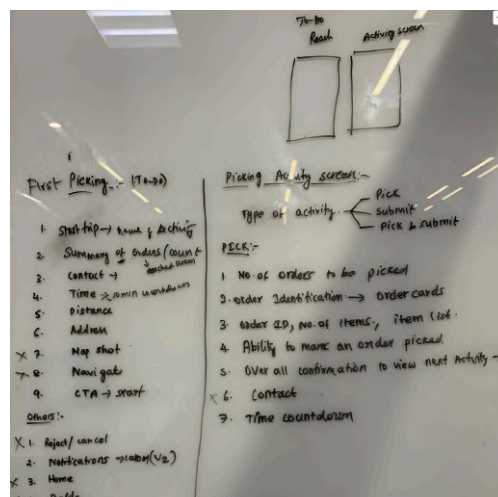 To-Do
Reach
Activity screen
First Picking:- (To-Do)
1. Start trip → Name of Activity
2. Summary of orders/count
3. Contact →
4. Time → 10min countdown
5. Distance
6. Address
x 7. Map shot
x 8. Navigate
9. CTA → start
Others:-
x 1. Reject/cancel
2. Notifications → (V2)
x 3. Home
Picking Activity screen:-
Type of activity
Pick
Submit
Pick & submit
PICK:-
1. No. of orders to be picked
2. order Identification → order cards
3. order ID, No. of Items, item list.
4. Ability to mark an order picked
5. Over all confirmation to view next Activity →
x 6. Contact
7. Time countdown